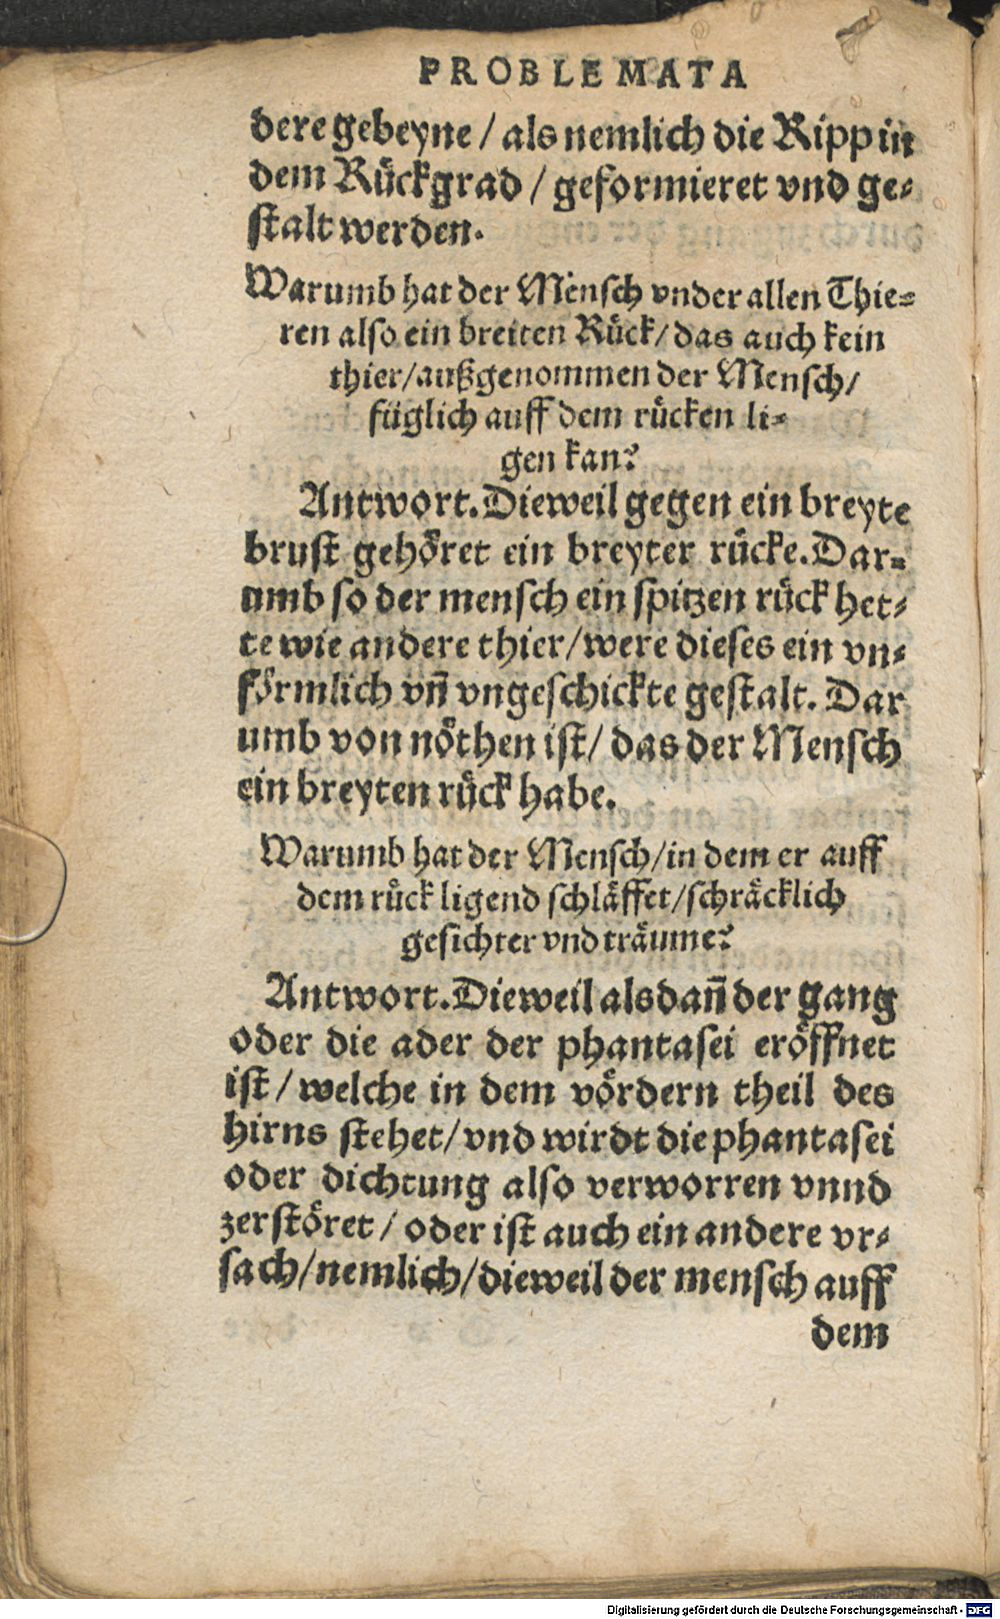 PROBLEMATA
dere gebeyne / als nemlich die Ripp in
dem Rückgrad / geformieret vnd ge-
stalt werden.
Warumb hat der Mensch vnder allen Thie-
ren also ein breiten Rück/ das auch kein
thier/außgenommen der Mensch/
füglich auff dem rücken li-
gen kan?
Antwort. Dieweil gegen ein breyte
brust gehöret ein breyter rücke. Dar-
umb so der mensch ein spitzen rück het-
te wie andere thier/ were dieses ein vn-
förmlich vñ vngeschickte gestalt. Dar
umb von nöthen ist/ das der Mensch
ein breyten rück habe.
Warumb hat der Mensch/in dem er auff
dem rück ligend schläffet/schräcklich
gesichter vnd träume?
Antwort. Dieweil als dañ der gang
oder die ader der phantasei eröffnet
ist/ welche in dem vördern theil des
hirns stehet/ vnd wirdt die phantasei
oder dichtung also verworren vnnd
zerstöret / oder ist auch ein andere vr-
sach/nemlich/dieweil der mensch auff
dem
Digitalisierung gefördert durch die Deutsche Forschungsgemeinschaft - DFG